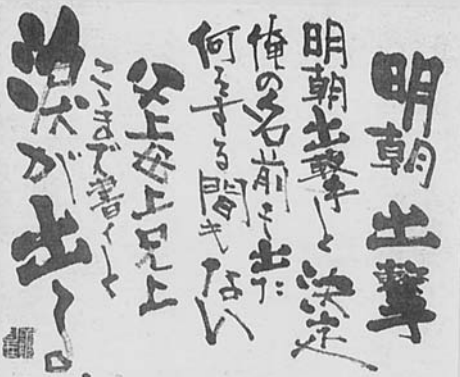 明朝出撃
明朝出撃と決定
俺の名前も出た
何をする間もない
父上母上兄上
こゝまで書くと
涙が出る。